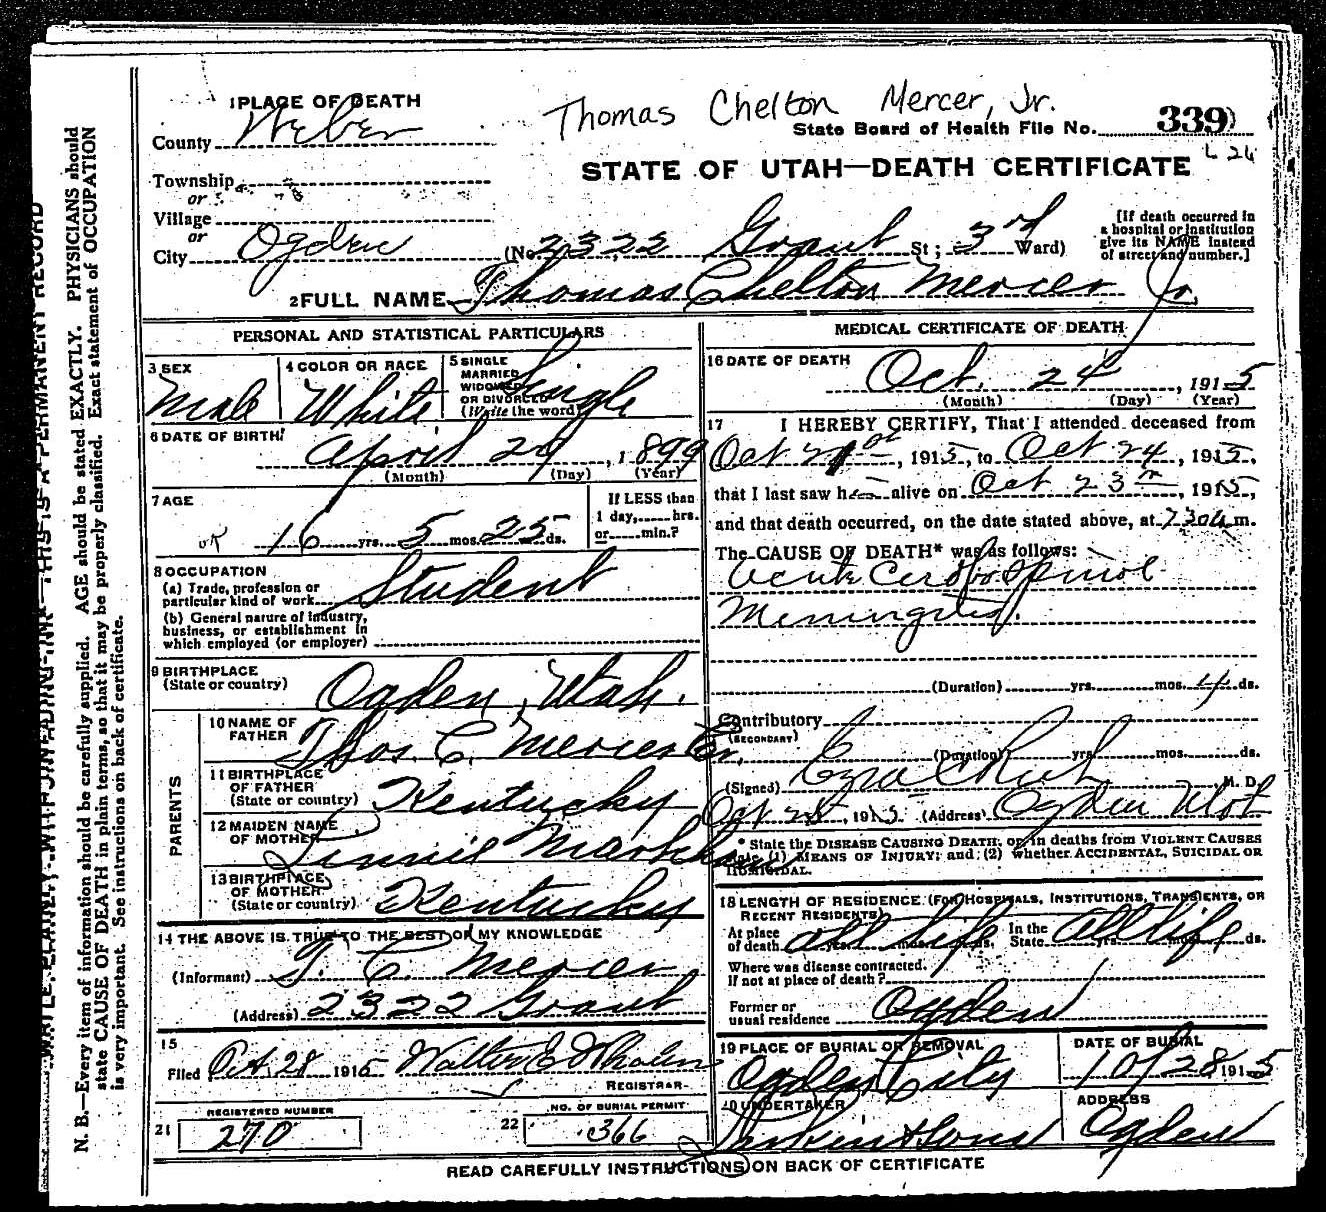 Thomas Chelton Mercer, Jr.
1 PLACE OF DEATH
County Weber
State Board of Health File No. 339
L 26
STATE OF UTAH—DEATH CERTIFICATE
Township
or
Village
or
City Ogden (No. 2322 Grant St; 3rd Ward)
[If death occurred in
a hospital or institution
give its NAME instead
of street and number.]
2 FULL NAME Thomas Chelton Mercer Jr.
PERSONAL AND STATISTICAL PARTICULARS
3 SEX Male
4 COLOR OR RACE White
5 SINGLE
MARRIED
WIDOWED
OR DIVORCED
(Write the word) Single
6 DATE OF BIRTH
April 29, 1899
(Month) (Day) (Year)
7 AGE
16 yrs. 5 mos. 25 ds.
If LESS than
1 day, hrs.
or min.?
8 OCCUPATION
(a) Trade, profession or
particular kind of work Student
(b) General nature of industry,
business, or establishment in
which employed (or employer)
9 BIRTHPLACE
(State or country) Ogden, Utah.
PARENTS
10 NAME OF
FATHER Thos. C. Mercer Sr.
11 BIRTHPLACE
OF FATHER
(State or country) Kentucky
12 MAIDEN NAME
OF MOTHER
13 BIRTHPLACE
OF MOTHER
(State or country) Kentucky
14 THE ABOVE IS TRUE TO THE BEST OF MY KNOWLEDGE
(Informant) T. C. Mercer
(Address) 2322 Grant
15
Filed Oct. 28 1915 Walter E Whalen
REGISTRAR
REGISTERED NUMBER
21 270
NO. OF BURIAL PERMIT
22 366
MEDICAL CERTIFICATE OF DEATH
16 DATE OF DEATH
Oct. 24, 1915
(Month) (Day) (Year)
17 I HEREBY CERTIFY, That I attended deceased from
Oct 21st, 1915, to Oct 24, 1915,
that I last saw h alive on Oct 23, 1915,
and that death occurred, on the date stated above, at 730 a m.
The CAUSE OF DEATH* was as follows:
Acute Cerebro Spinal
Meningitis.
(Duration) yrs. mos. 4 ds.
Contributory
(SECONDARY)
(Duration) yrs. mos. ds.
(Signed) Ezra C Rich M. D.
Oct, 1915 (Address) Ogden Utah
* State the DISEASE CAUSING DEATH, or, in deaths from VIOLENT CAUSES
state (1) MEANS OF INJURY; and (2) whether ACCIDENTAL, SUICIDAL OR
HOMICIDAL.
18 LENGTH OF RESIDENCE (FOR HOSPITALS, INSTITUTIONS, TRANSIENTS, OR
RECENT RESIDENTS)
At place
of death all life yrs. mos. ds. In the
State all life yrs. mos. ds.
Where was disease contracted.
If not at place of death?
Former or
usual residence Ogden
19 PLACE OF BURIAL OR REMOVAL
Ogden City
DATE OF BURIAL
10/28 1915
20 UNDERTAKER
Larkin & Sons
ADDRESS
Ogden
READ CAREFULLY INSTRUCTIONS ON BACK OF CERTIFICATE
WRITE PLAINLY, WITH UNFADING INK—THIS IS A PERMANENT RECORD
N. B.—Every item of information should be carefully supplied. AGE should be stated EXACTLY. PHYSICIANS should
state CAUSE OF DEATH in plain terms, so that it may be properly classified. Exact statement of OCCUPATION
is very important. See instructions on back of certificate.